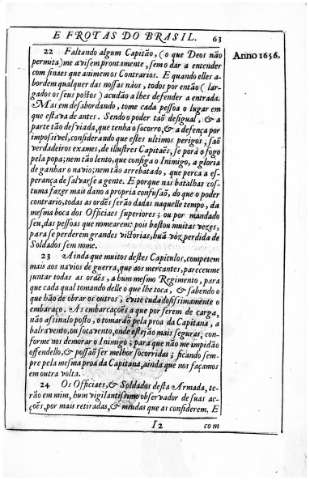 E FROTAS DO BRASIL. 63
Anno 1656.
22 Faltando algum Capitão, (o que Deos não
permita) me avisem prontamente, sem o dar a entender
com sinaes que animem os Contrarios. E quando elles a-
bordem qualquer das nossas náos, todos por então (lar-
gados os seus postos) acudão a lhes defender a entrada.
Mas em desabordando, tome cada pessoa o lugar em
que estava de antes. Sendo o poder taõ desigual, & a
parte tão desviada, que tenha o socorro, & a defença por
impossivel, considerando que estes ultimos perigos, saõ
verdadeiros exames, de illustres Capitaẽs, se porà o fogo
pela popa; nem tão lento, que consiga o Inimigo, a gloria
de ganhar o navio; nem tão arrebatado, que perca a es-
perança de salvarse a gente. E porque nas batalhas cos-
tuma fazer mais dano a propria confusaõ, do que o poder
contrario, todas as ordẽs serão dadas naquelle tempo, da
mesma boca dos Officiaes superiores; ou por mandado
seu, das pessoas que nomearem: pois bastou muitas vezes,
para se perderem grandes vittorias, hũa vóz perdida de
Soldados sem nome.
23 Ainda que muitos destes Capitulos, competem
mais aos navios de guerra, que aos mercantes, pareceume
juntar todas as ordẽs, a hum mesmo Regimento, para
que cada qual tomando delle o que lhe toca, & sabendo o
que hão de obrar os outros, evite cuidadosissimamente o
embaraço. As embarcações a que por serem de carga,
não assinalo posto, o tomarão pela proa da Capitana, a
balravento, ou sotavento, onde estejão mais seguras, con-
forme nos demorar o Inimigo; para que não me impidão
offendelo, & possaõ ser melhor socorridas; ficando sem-
pre pela mesma proa da Capitana, ainda que nos façamos
em outra volta.
24 Os Officiaes, & Soldados desta Armada, te-
rão em mim, hum vigilantissimo observador de suas ac-
ções, por mais retiradas, & miudas que as considerem. E
I 2 com